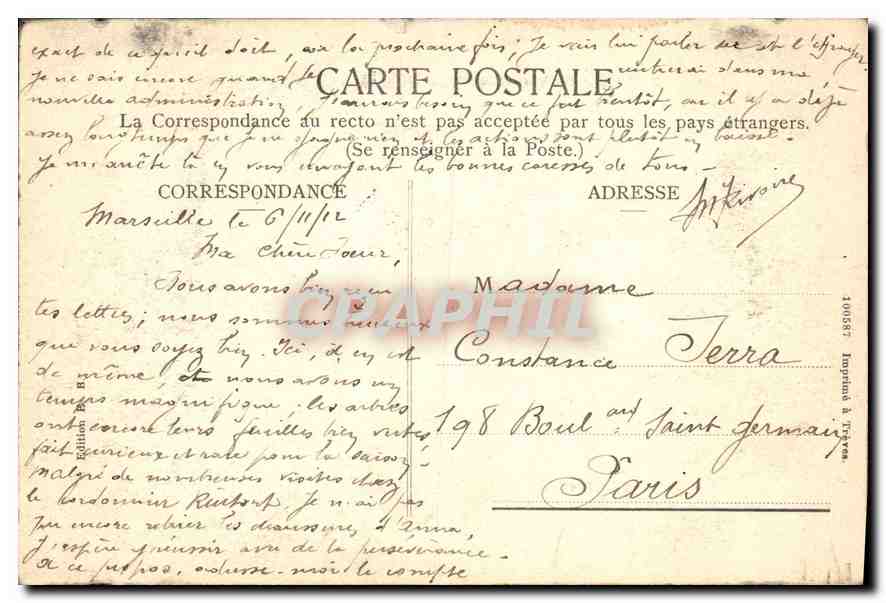 exact de ce qu'il doit, à la prochaine fois; Je vais lui parler
Je ne sais encore quand je rentrerai dans ma
CARTE POSTALE
nouvelle administration, j'aurais besoin que ce fut bientôt, car il y a déjà
La Correspondance au recto n'est pas acceptée par tous les pays étrangers.
assez longtemps que je ne gagne rien et les actions sont plutôt en baisse.
(Se renseigner à la Poste.)
Je m'arrête là en vous envoyant les bonnes caresses de tous -
CORRESPONDANCE
ADRESSE
Marseille le 6/11/12
Ma chère Soeur,
Nous avons bien reçu
tes lettres; nous sommes heureux
que vous soyez bien. Ici, il en est
de même, et nous avons un
temps magnifique, les arbres
ont encore leurs feuilles bien vertes,
fait curieux et rare pour la saison.
Malgré de nombreuses visites chez
le cordonnier Je n'ai pas
pu encore retirer les chaussures d'Anna,
j'espère réussir avec de la persévérance.
A ce propos, adresse-moi le compte
Madame
Constance Terra
198 Boulard Saint Germain
Paris
Edition B. B.
100587 Imprimé à Trèves.
CPAPHIL